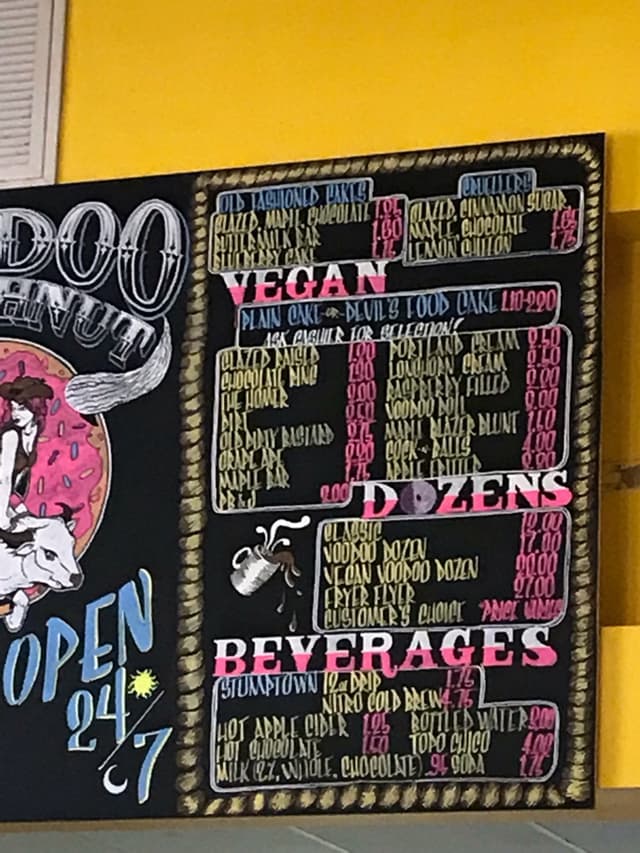 DOO
OPEN
24/7
OLD FASHIONED CAKES
GLAZED, MAPLE, CHOCOLATE
BUTTERMILK BAR 1.60
BLUEBERRY CAKE 1.75
CRUELLERS
GLAZED, CINNAMON SUGAR,
MAPLE, CHOCOLATE
VEGAN
PLAIN CAKE OR DEVIL'S FOOD CAKE 1.10-2.20
ASK CASHIER FOR SELECTION!
GLAZED RAISED
CHOCOLATE RING
THE HOMER
DIRT
OLD DIRTY BASTARD
GRAPE APE
MAPLE BAR 1.75
PB & J 3.00
PORTLAND CREAM
LONGHORN CREAM
RASPBERRY FILLED
VOODOO DOLL
MAPLE BLAZER BLUNT
COCK-N-BALLS
APPLE FRITTER
DOZENS
CLASSIC
VOODOO DOZEN 17.00
VEGAN VOODOO DOZEN 20.00
FRYER FLYER 27.00
CUSTOMER'S CHOICE *PRICE VARIES
BEVERAGES
STUMPTOWN 12oz DRIP 1.75
NITRO COLD BREW 4.75
HOT APPLE CIDER 1.25
HOT CHOCOLATE 1.50
MILK (2%, WHOLE, CHOCOLATE) .95
BOTTLED WATER 2.00
TOPO CHICO
SODA 1.75